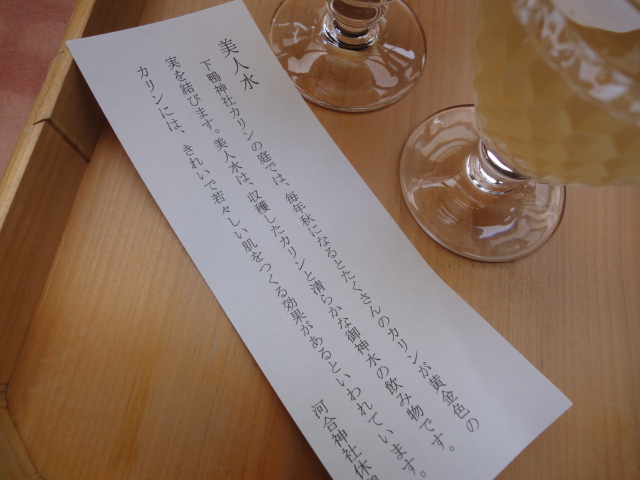 美人水
下鴨神社カリンの庭では、毎年秋になるとたくさんのカリンが黄金色の
実を結びます。美人水は、収穫したカリンと清らかな御神水の飲み物です。
カリンには、きれいで若々しい肌をつくる効果があるといわれています。
河合神社休